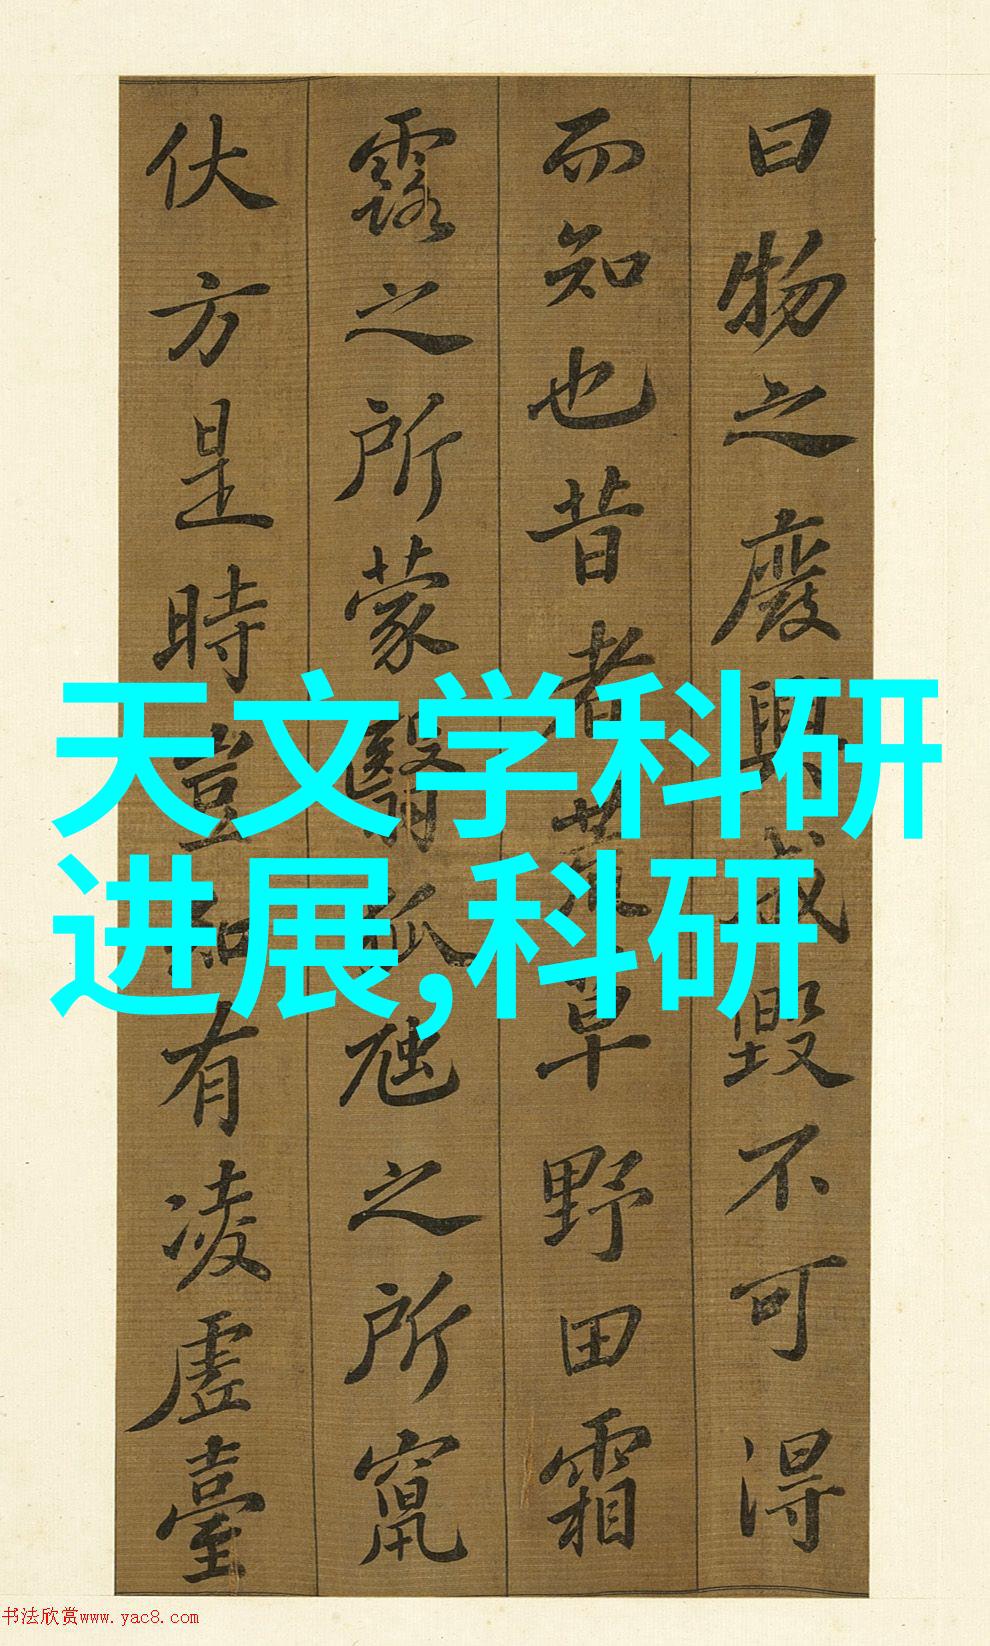 曰物之廢興成毀不可得
而知也昔者荒草野田霜
露之所蒙翳狐虺之所竄
伏方是時豈知有凌虛臺
天文学科研
进展,科研
书法欣赏www.yac8.com